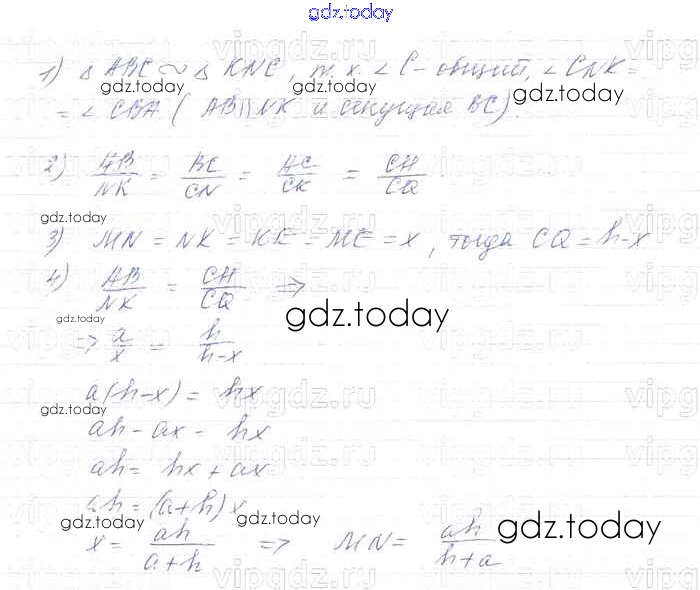 gdz.today
1) △ ABC ~ △ KNC, т.к. ∠ C - общий, ∠ CNK =
= ∠ CBA ( AB || NK и секущая BC).
gdz.today gdz.today
2) AB/NK = BC/CN = AC/CK = CH/CQ
gdz.today gdz.today
3) MN = NK = KE = ME = x, тогда CQ = h-x
4) AB/NK = CH/CQ ⇒
gdz.today gdz.today
⇒ a/x = h/h-x
a(h-x) = hx
gdz.today
ah - ax = hx
ah = hx + ax
ah = (a+h)x
gdz.today gdz.today gdz.today
x = ah/a+h ⇒ MN = ah/h+a